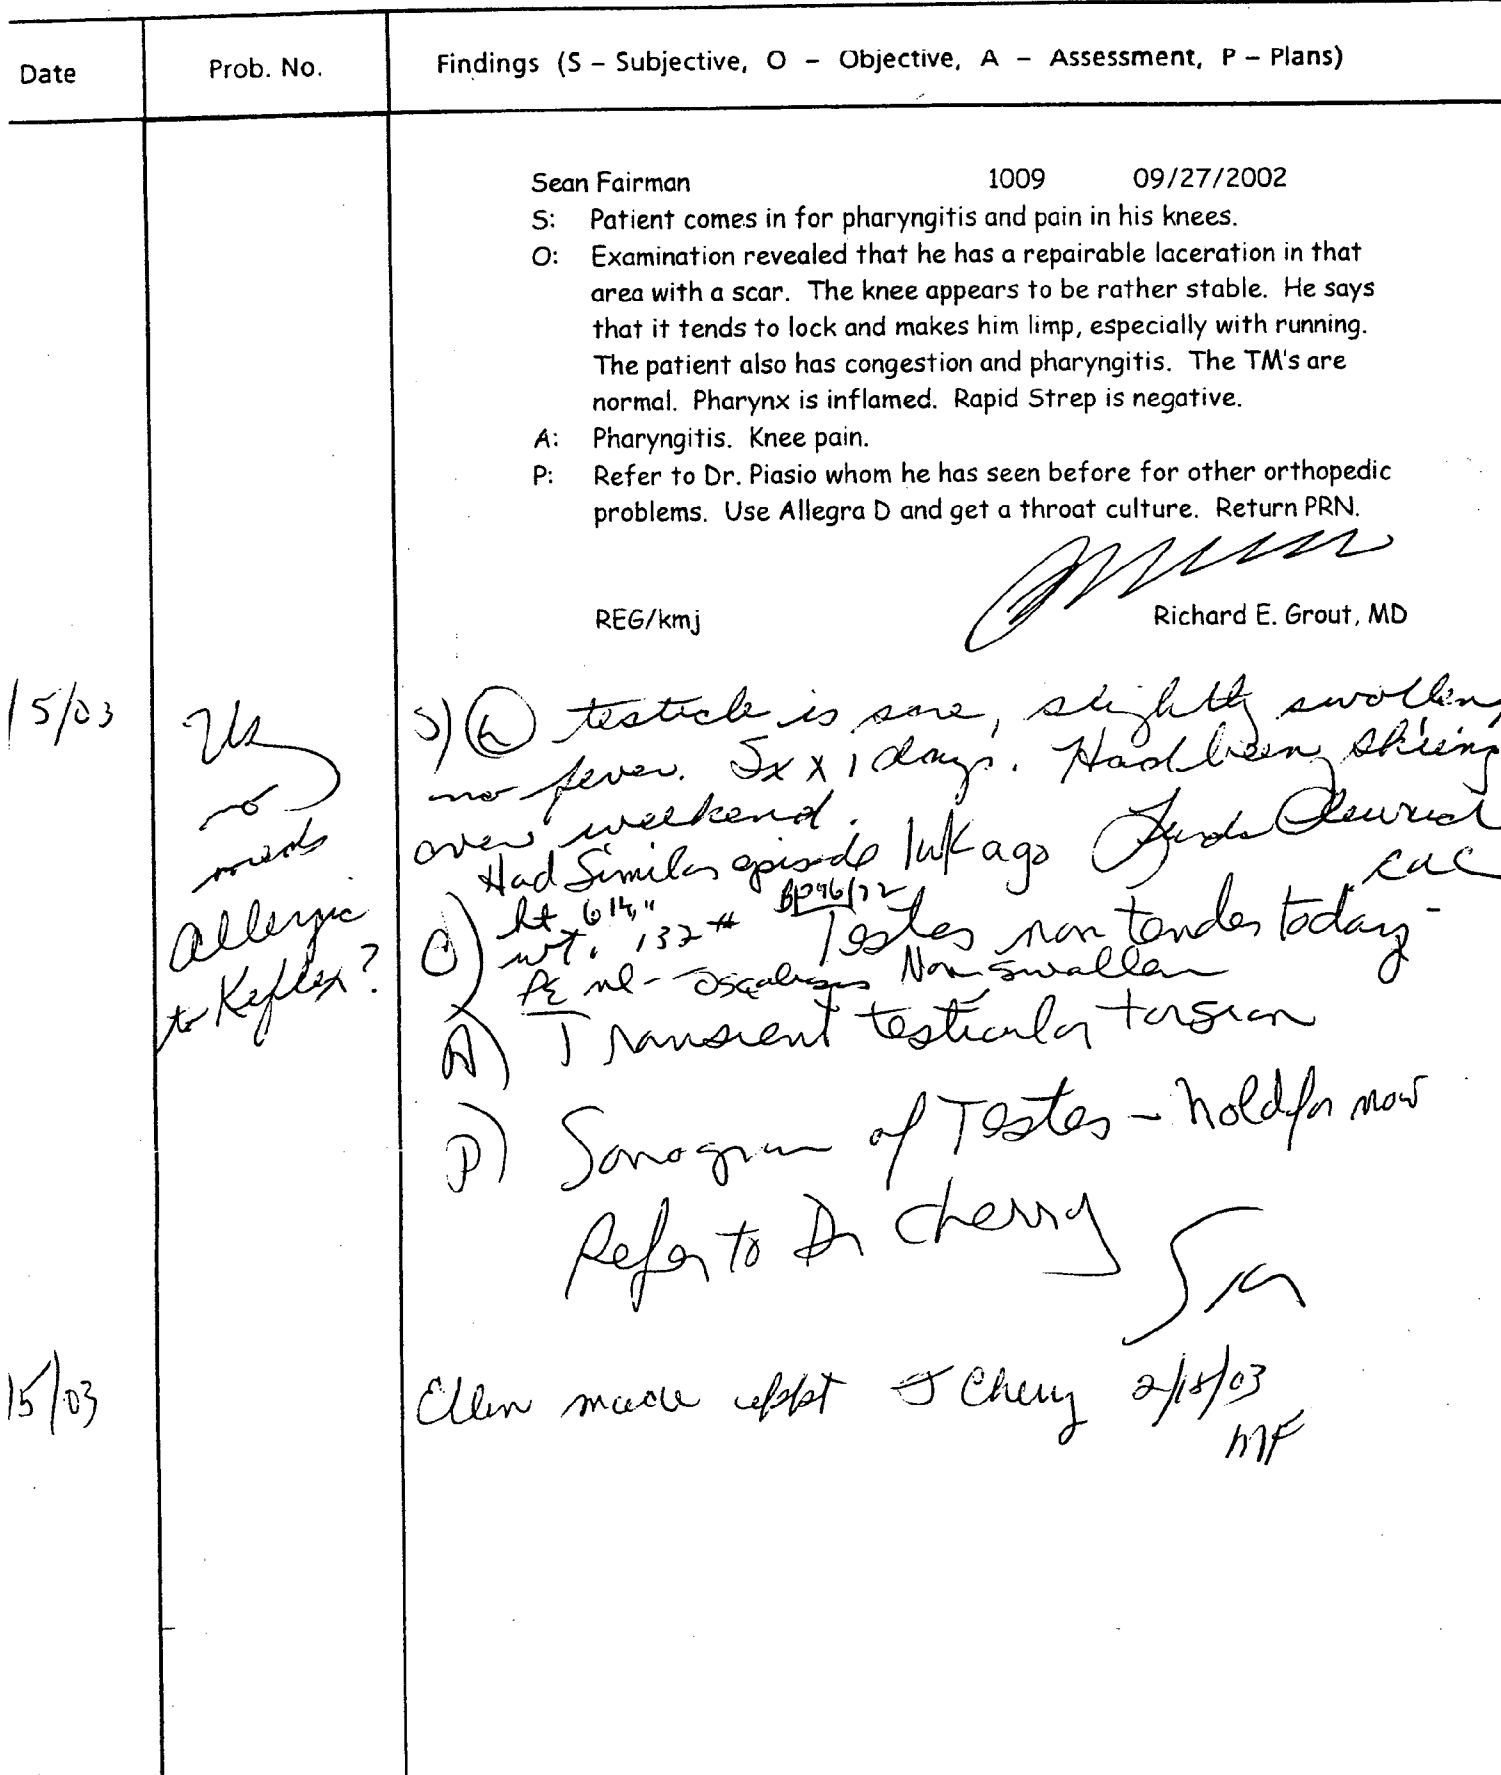 Date Prob. No. Findings (S – Subjective, O – Objective, A – Assessment, P – Plans)
Sean Fairman 1009 09/27/2002
S: Patient comes in for pharyngitis and pain in his knees.
O: Examination revealed that he has a repairable laceration in that
area with a scar. The knee appears to be rather stable. He says
that it tends to lock and makes him limp, especially with running.
The patient also has congestion and pharyngitis. The TM's are
normal. Pharynx is inflamed. Rapid Strep is negative.
A: Pharyngitis. Knee pain.
P: Refer to Dr. Piasio whom he has seen before for other orthopedic
problems. Use Allegra D and get a throat culture. Return PRN.
REG/kmj Richard E. Grout, MD
15/03
no
meds
allergic
to Keflex?
S) testicle is sore, slightly swollen,
no fever. Sx x 1 days. Had been skiing
over weekend.
Had Similar episode 1wk ago
O) ht 61
wt. 132# BP 96/72
Testes non tender today -
PE nl - Non swollen
A) Transient testicular torsion
P) Sonogram of Testes - hold for now
Refer to Dr Cherry
15/03
Ellen made appt Cherry 2/18/03
MF